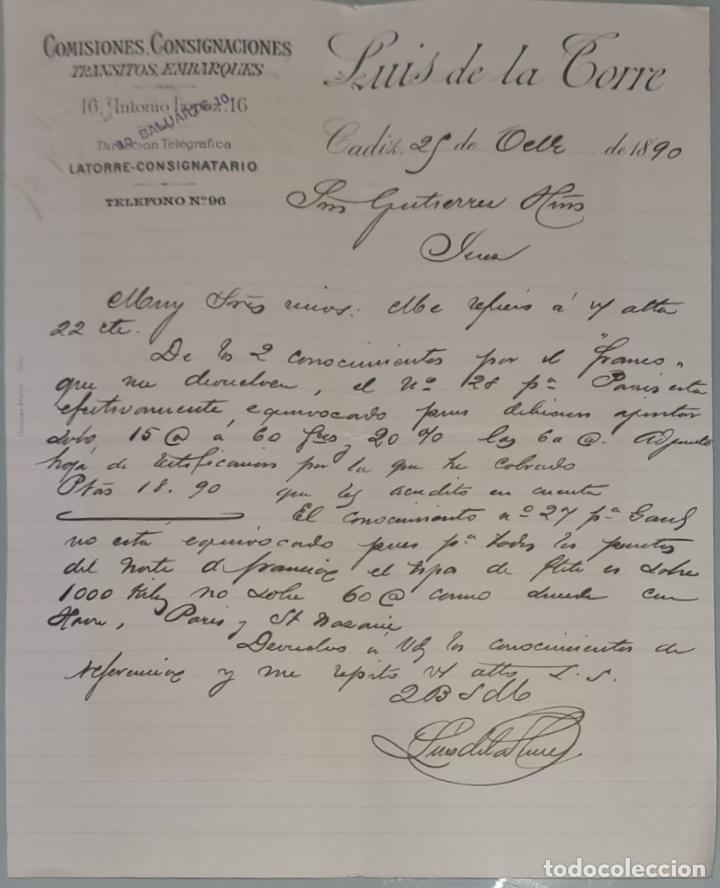 COMISIONES, CONSIGNACIONES
TRANSITOS, EMBARQUES
16, Antonio Lopez, 16
10 BALUARTE 10
Dirección Telegráfica
LATORRE-CONSIGNATARIO
TELEFONO Nº 96
Luis de la Torre
Cadiz, 25 de Octe de 1890
Sres Gutierrez Hnos
Jerez
Muy Sres mios. Me refiero á s/ atta
22 cte.
De los 2 conocimientos por el "Franco"
que me devuelven, el nº 28 pª Paris esta
efectivamente equivocado pues debieron apuntar
solo 15 @ á 60 fcos y 20 % las 60 @. Adjunto
hoja de rectificacion por la que he cobrado
Ptas 18.90 que les acredito en cuenta
El conocimiento nº 27 pª
no está equivocado pues pª todos los puertos
del Norte de francia el tipo de flete es sobre
1000 Kilos no sobre 60 @ como sucede con
Havre, Paris y St Nazaire
Devuelvo á Vds los conocimientos de
referencia y me repito s/ atto S. S.
Q B S M
Luis de la Torre
todocoleccion
todocoleccion.net